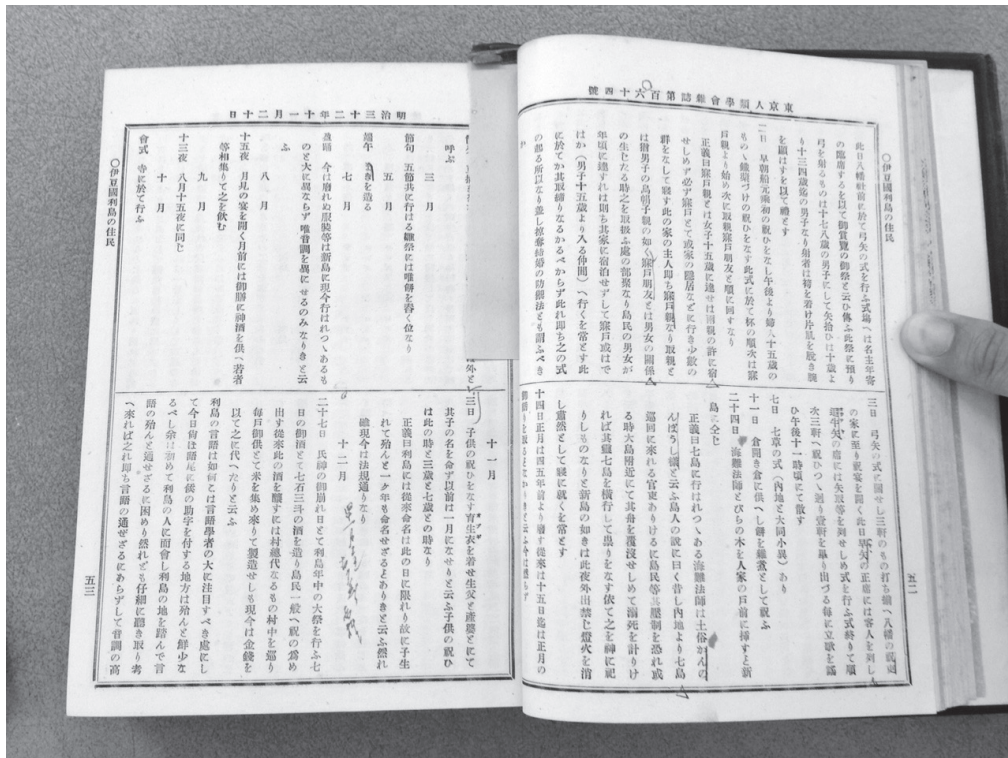 東京人類學會雜誌第百六十四號
〇伊豆國利島の住民
五二
此日八幡社前に於て弓矢の式を行ふ式場へは名主年寄
の臨席するを以て御賞覽の御祭と云ひ傳ふ此祭に預り
弓を射るものは十七八歲の男子にして矢拾ひは十歲よ
り十三四歲迄の男子なり射者は袴を着け片肌を脫き腕
を顯はすを以て禮とす
二日　早朝船元乘初の祝ひをなし午後より
正義曰寐戶親とは女子十五歲に達せは兩親の許に宿
せしめず必ず寐戶とて或家の隱居などに行き少數の
群をなして寢す此の家の主人即ち寐戶親なり取親と
は附男子の烏帽子親の如く寐戶朋友とは男女の關係
の生じたる時之を取扱ふ處の部聚なり島民の男女が
年頃に達すれは則ち其家に宿泊せずして寐戶或はで
はか（男子十五歲より入る仲間）へ行くを常とす此
に於てか其取締りなかるべからず此れ即ち之の式
の起る所以なり蓋し掠奪結婚の防禦法とも謂ふべき
か
三日　弓矢の式に關せし三軒のもの打ち揃へ八幡の祝
の家に至り祝宴を開く此日弓矢の正席には客人を列し
次三軒へ祝ひつゝ廻り壹軒を畢り出づる每に立歌を謠
ひ午後十一時頃にて散す
七日　七草の式（內地と大同小異）あり
十一日　倉開き倉に供へし餅を雜煮として祝ふ
二十四日　海難法師とびらの木を人家の戶前に揷すと新
島に仝じ
正義曰七島に行はれつゝある海難法師は土俗かんな
んぼうし樣と云ふ島人の說に曰く昔し內地より七島
巡回に來れる官吏ありけるに島民等其壓制を恐れ或
る時大島附近にて其舟を覆沒せしめて溺死を計りけ
れば其靈七島を橫行して祟りをなす依て之を神に祀
りしものなりと新島の如きは此夜外出禁じ燈火を消
し蕭然として寢に就くを常とす
十四日正月は四五年前より廢す從來は十五日迄は正月の
明治三十二年十一月二十日
呼ぶ
三月
節句　五節共に行はる雛祭には唯餠を舂く位なり
五月
端午
七月
盆踊　今は廢れぬ服裝等は新島に現今行はれつゝあるも
のと大に異ならず唯音調を異にせるのみなりきと云
ふ
八月
十五夜　月見の宴を開く月前には御膳に神酒を供へ若者
等相集りて之を飮む
九月
十三夜　八月十五夜に同じ
十月
會式　寺に於て行ふ
〇伊豆國利島の住民
十一月
三日　子供の祝ひをなす育生衣を着せ生父と產婆とにて
其子の名を命ず以前は一月になせりと云ふ子供の祝ひ
は此の時と三歲と七歲との時なり
正義曰利島には從來命名は此の日に限れり故に子生
れて殆んと一ヶ年も命名せざるとありきと云ふ然れ
雖現今は法規通りなり
十二月
二十七日　氏神の御崩れ日とて利島年中の大祭を行ふ七
日の御酒とて七石三斗の酒を造り島民一般へ祝の爲め
出す從來此の酒を釀すには村總代なるもの村中を巡り
每戶御供とて米を集め來りて製造せしも現今は金錢を
以て之に代へたりと云ふ
利島の言語は如何こは言語學者の大に注目すべき處にし
て今日尙ほ語尾に候の助字を付する地方は殆んと鮮少な
るべし余は初めて利島の人に面會し利島の地を踏んで言
語の殆んと通せざるに困めり然れども仔細に聽き取り考
へ來れば之れ即ち言語の通ぜざるにあらずして音調の高
五三